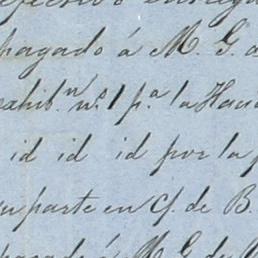 efectivo entreg
pagado á M. G. d
exhib.n n.s 1 p.a la Hac
id id id por la p
su parte en C/. de B.
pagado á M. G. de